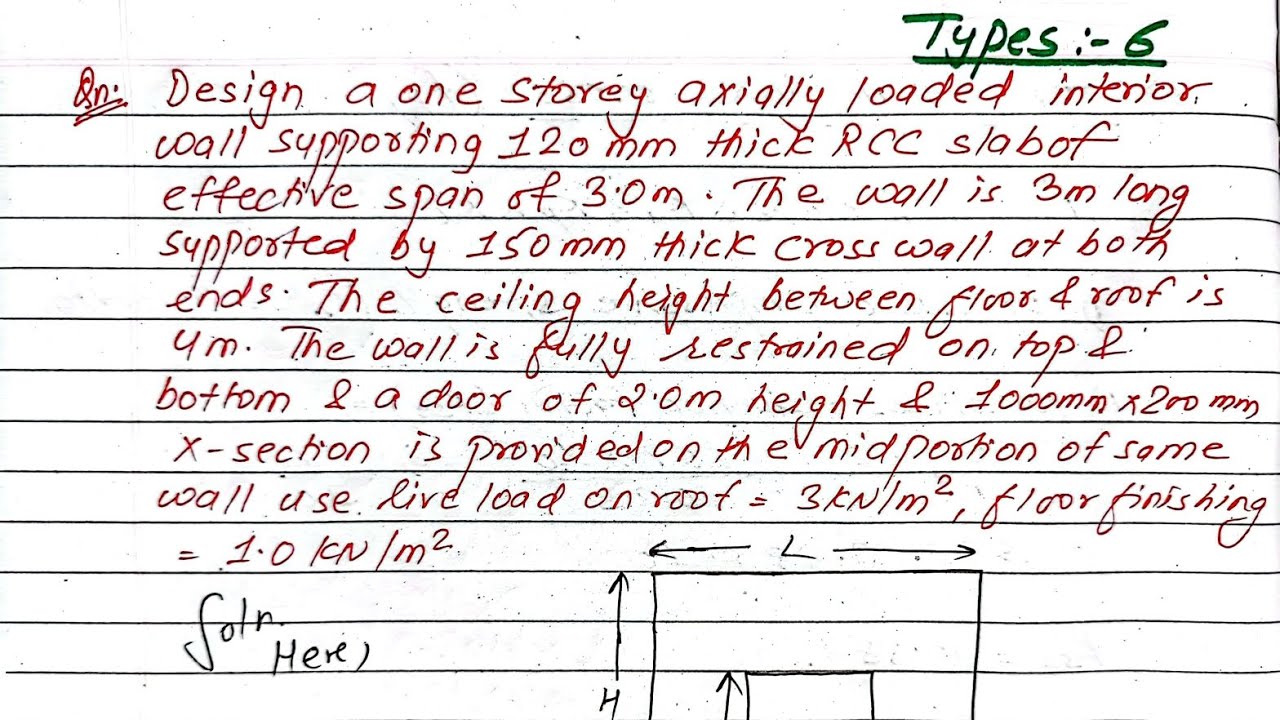 Types:- 6
Qn:. Design a one storey axially loaded interior.
wall supporting 120 mm thick RCC slab of
effective span of 3.0m. The wall is 3m long
supported by 150mm thick cross wall at both
ends. The ceiling height between floor & roof is
4m. The wall is fully restrained on top &
bottom & a door of 2.0m height & 1000mm x 200 mm
X-section is provided on the midportion of same
wall use live load on roof = 3KN/m², floor finishing
= 1.0 KN/m²
L
Soln.
Here,
H